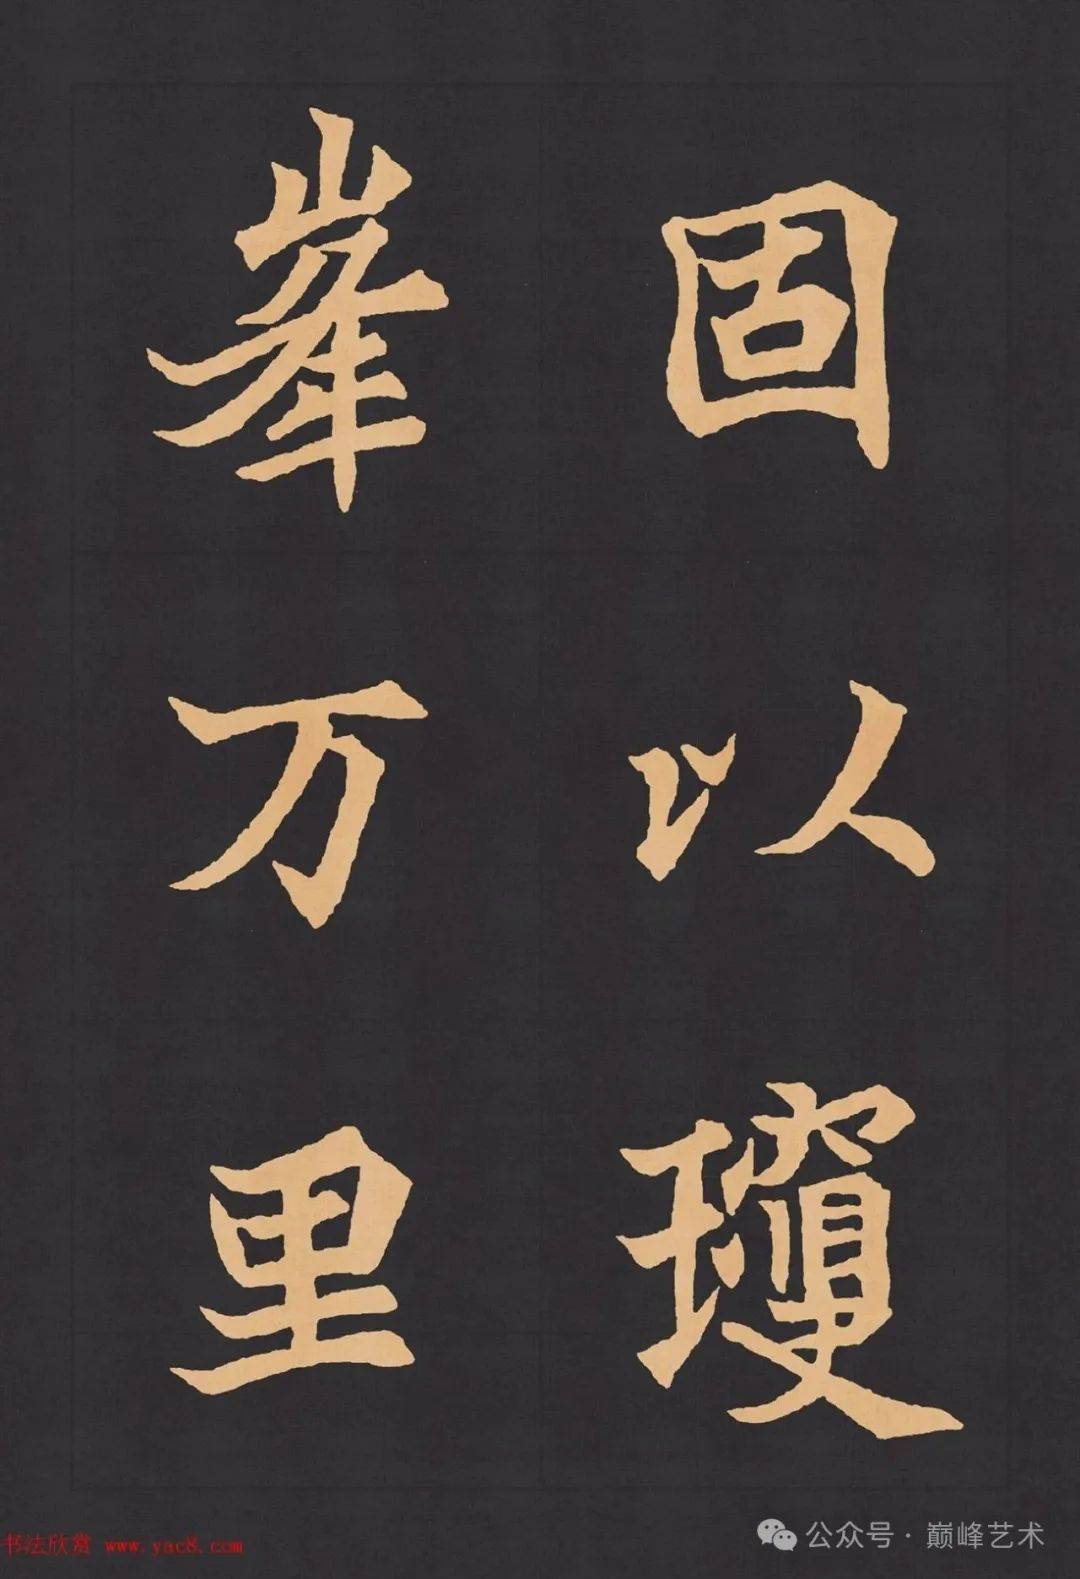 固以瓊
峯万里
书法欣赏 www.yac8.com
公众号·巅峰艺术